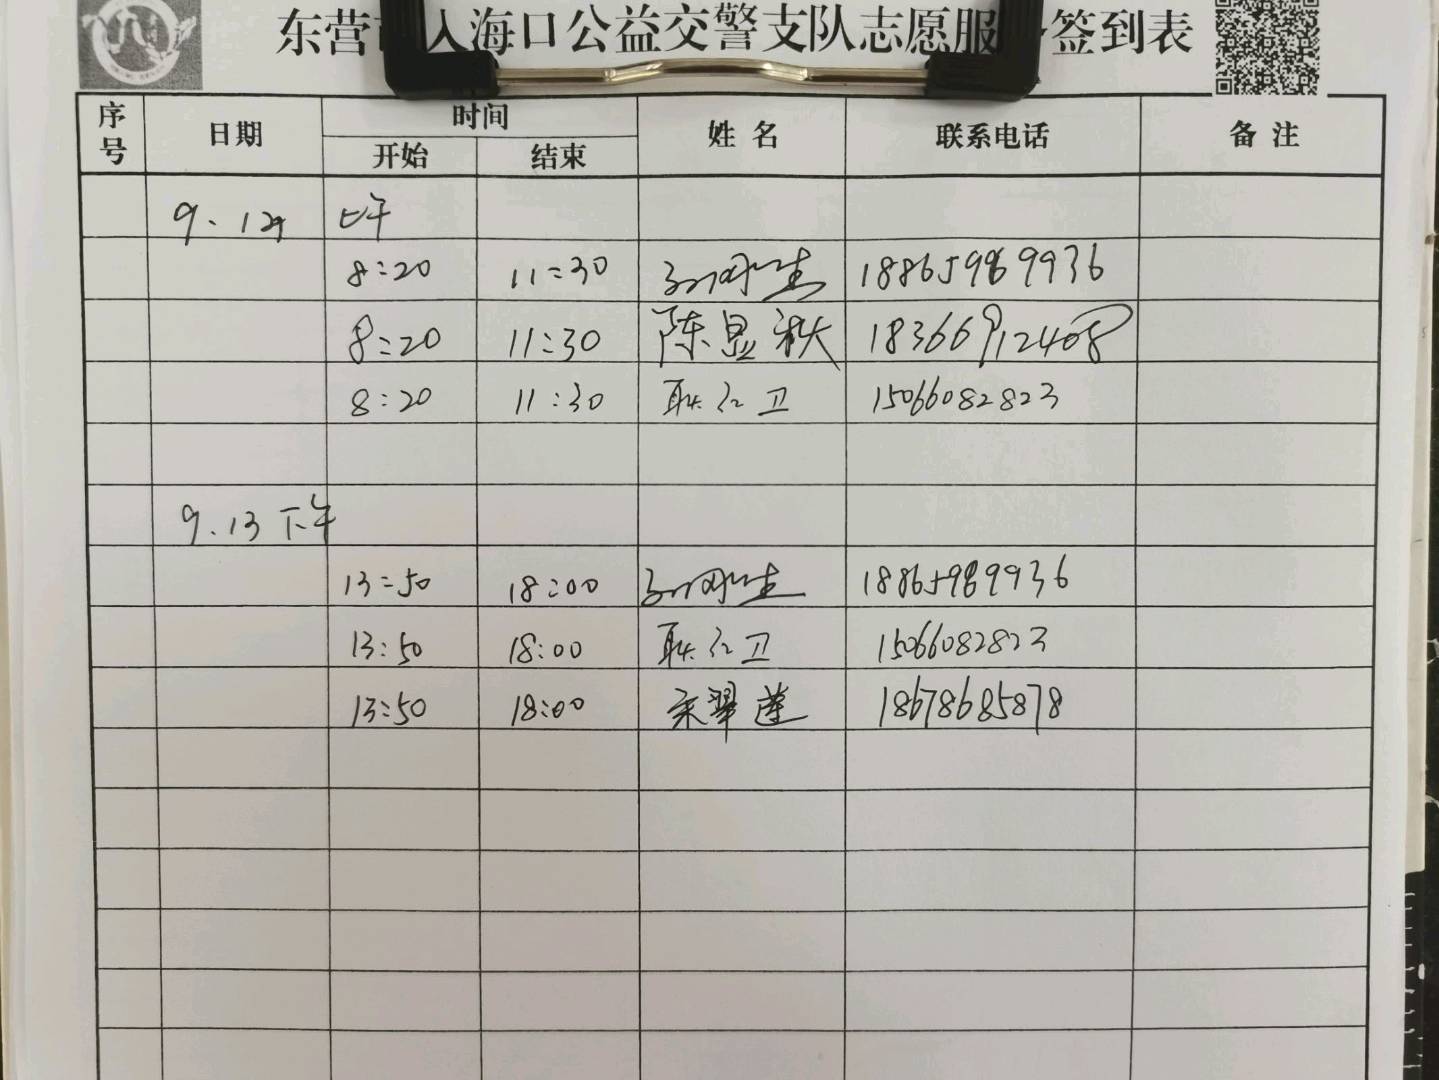 东营 入海口公益交警支队志愿服 签到表
序号 日期 时间 姓名 联系电话 备注
开始 结束
9.12 上午
8:20 11:30 18865989936
8:20 11:30 陈显秩 18366912408
8:20 11:30 耿红卫 15066082823
9.13 下午
13:50 18:00 18865989936
13:50 18:00 耿红卫 15066082823
13:50 18:00 宋翠莲 18678685878